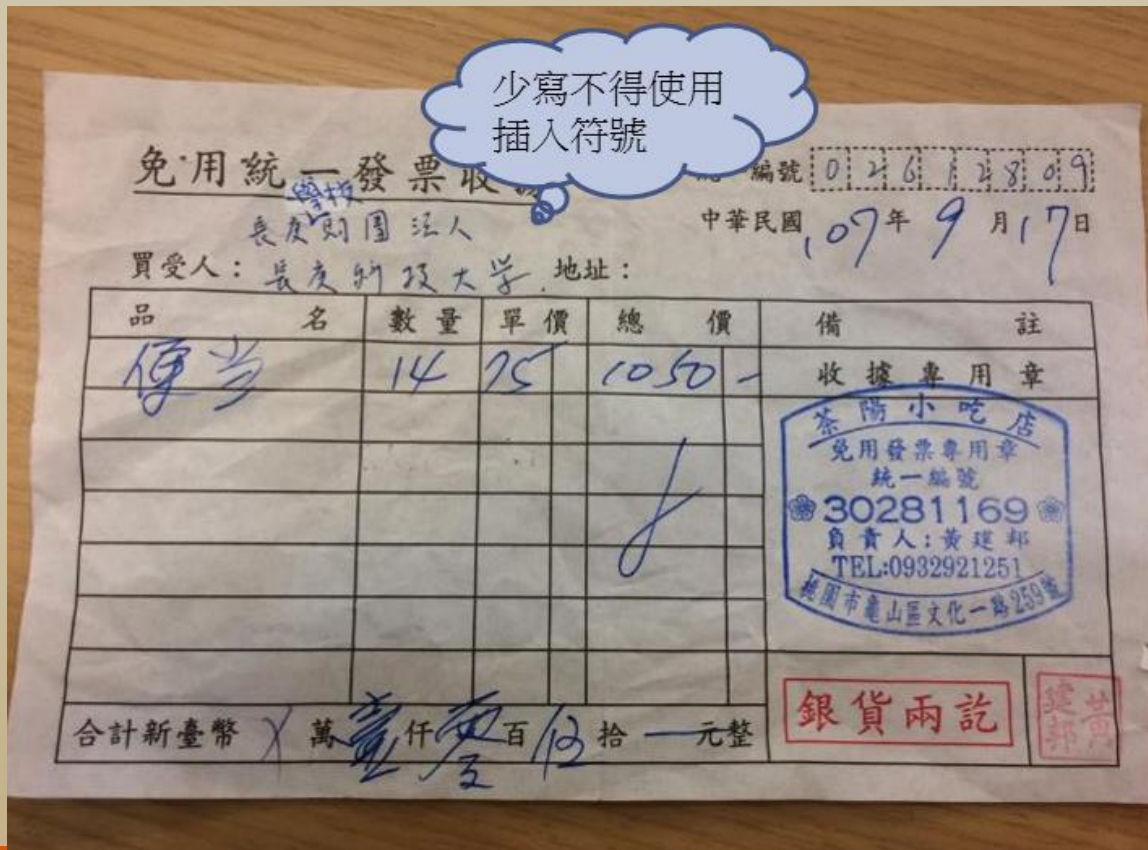 少寫不得使用
插入符號
免用統一發票收
編號 02612809
學校
長庚財團法人
中華民國 107年 9月17日
買受人：長庚科技大学 地址：
品名 數量 單價 總價 備註
便当 14 75 1050 - 收據專用章
茶陽小吃店
免用發票專用章
統一編號
30281169
負責人：黃建邦
TEL:0932921251
桃園市龜山區文化一路259號
銀貨兩訖
黃建邦
合計新臺幣 X 萬 壹 仟 零 百 伍 拾 一 元整